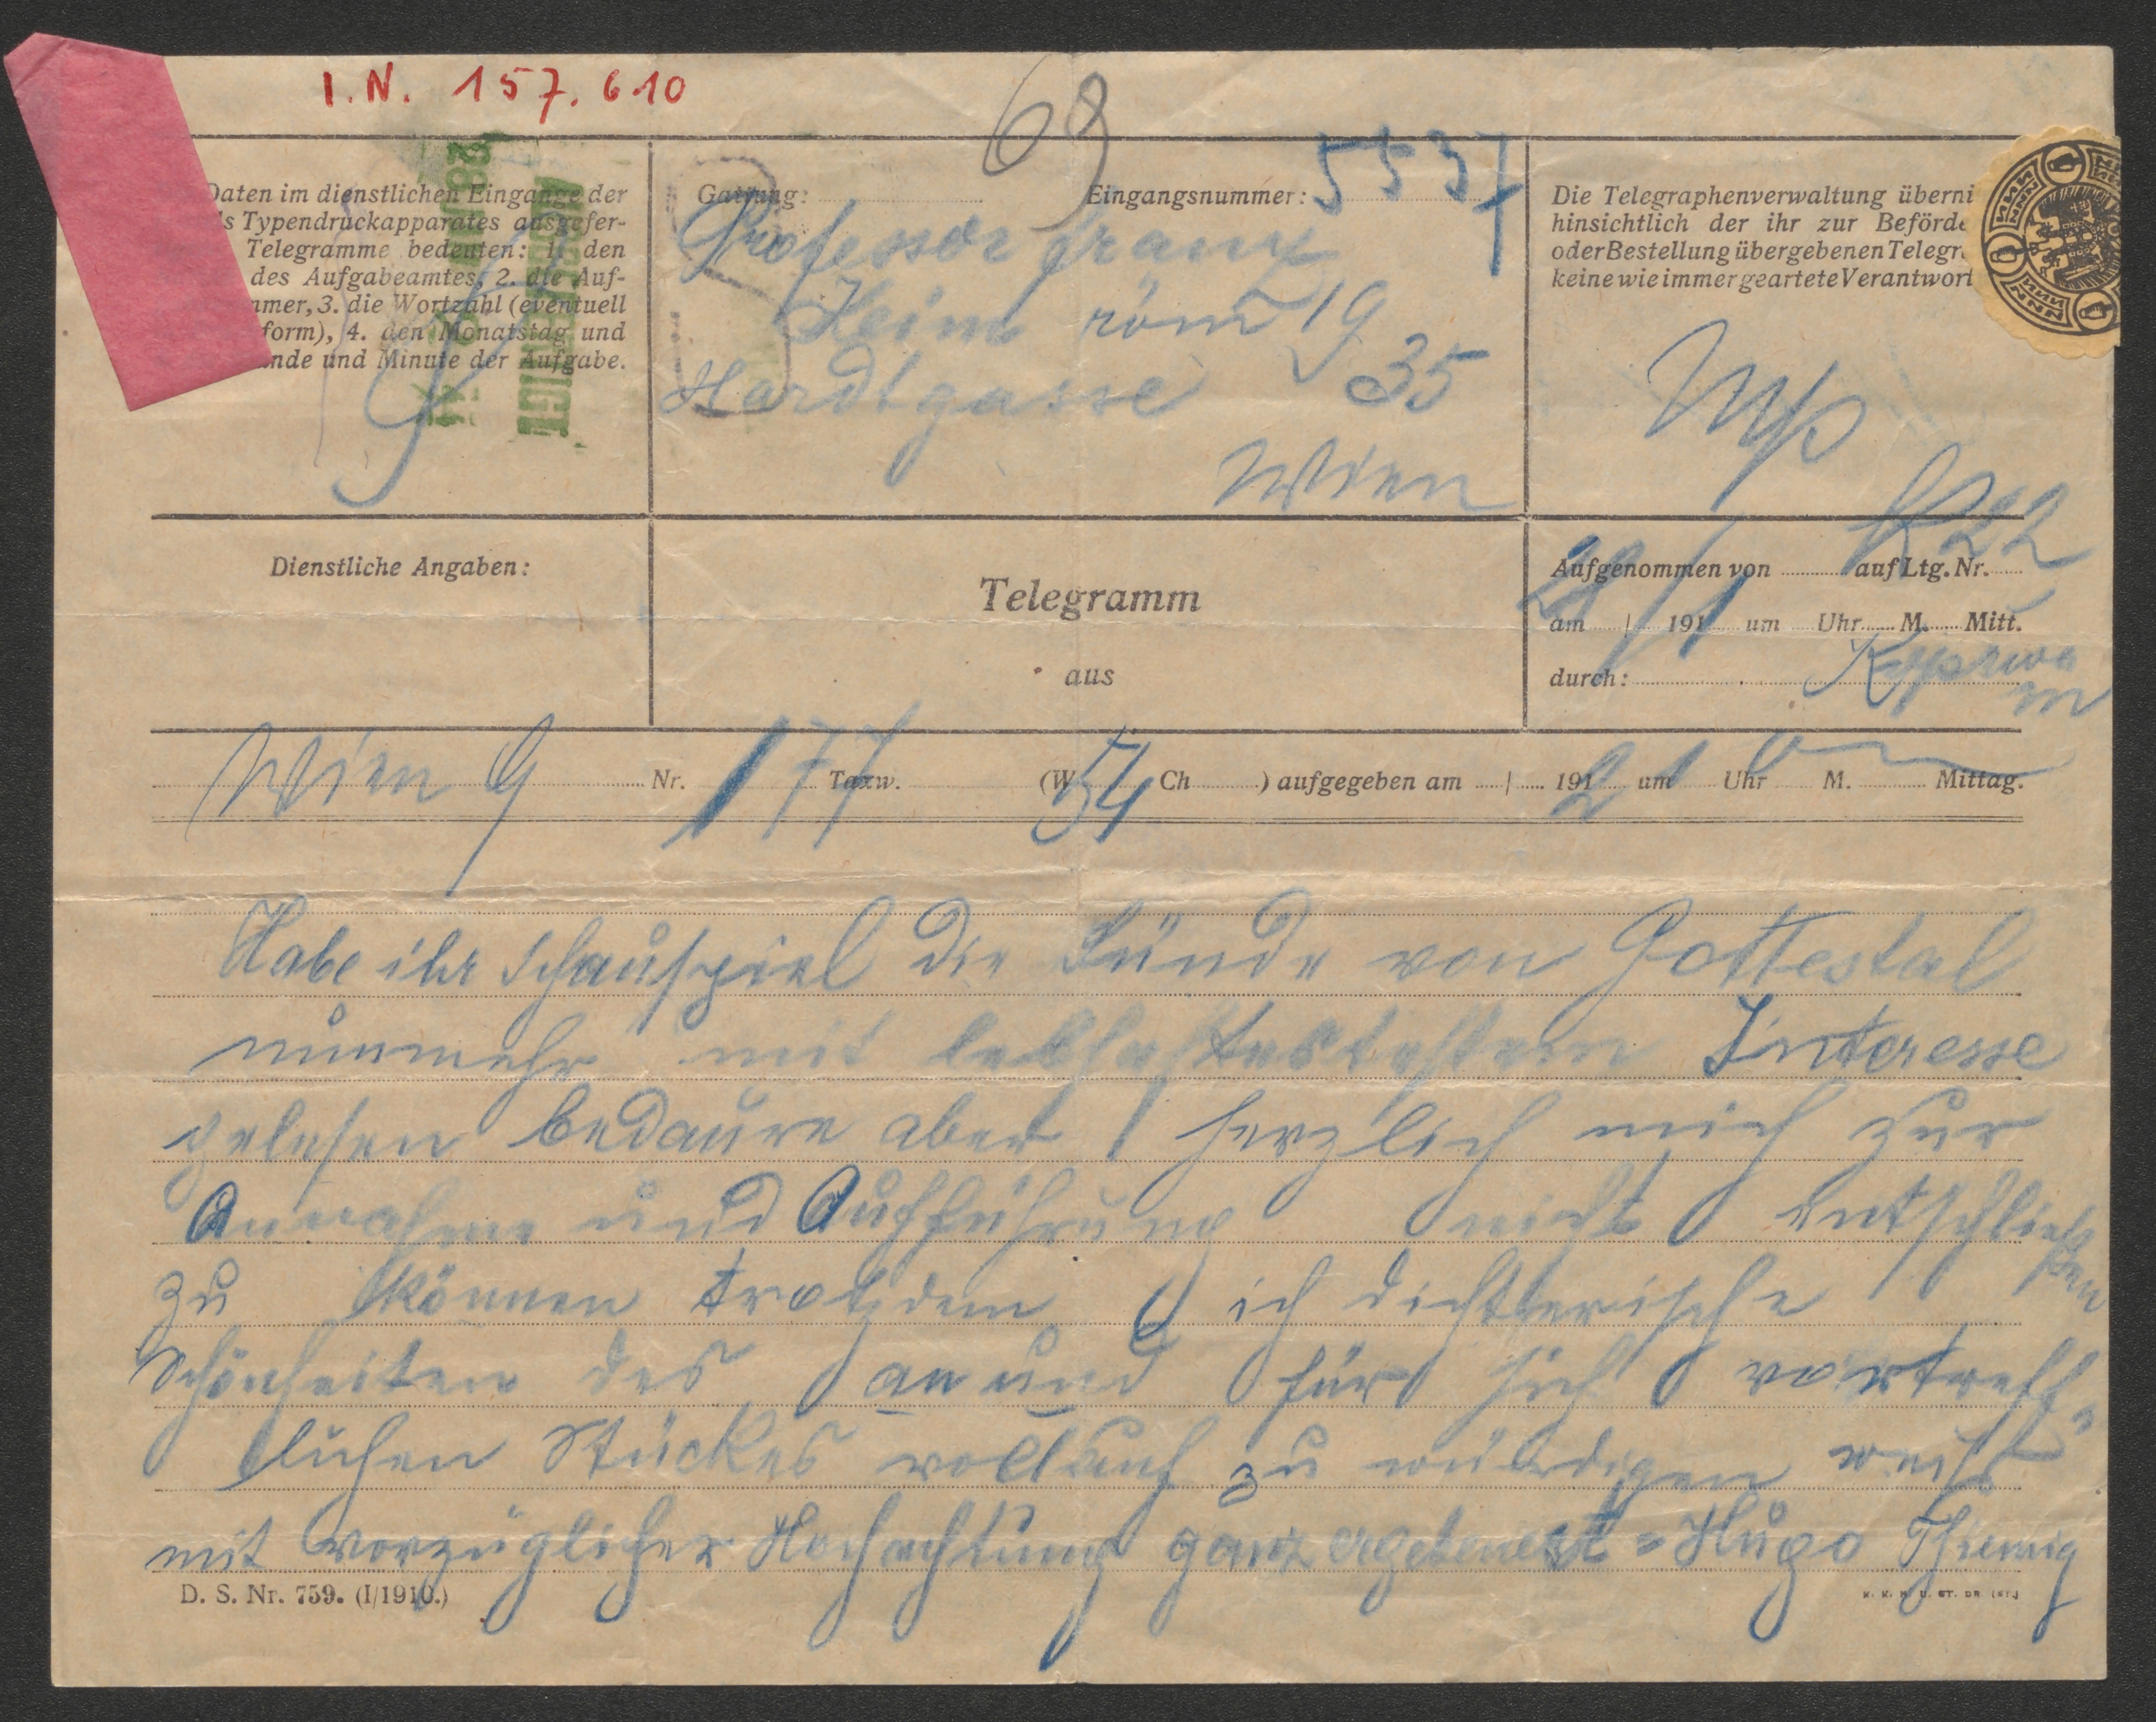 I.N. 157.610
68
Daten im dienstlichen Eingange der
s Typendruckapparates ausgefer-
Telegramme bedeuten: 1. den
des Aufgabeamtes, 2. die Auf-
mmer, 3. die Wortzahl (eventuell
form), 4. den Monatstag und
nde und Minute der Aufgabe.
Gattung:
Eingangsnummer: 5537
Professor Franz
Keim röm 19
Hardtgasse 35
Wien
Die Telegraphenverwaltung überni
hinsichtlich der ihr zur Beförde
oder Bestellung übergebenen Telegr
keine wie immer geartete Verantwort
Dienstliche Angaben:
Telegramm
aus
Aufgenommen von auf Ltg. Nr. 22
am | 191 um Uhr M. Mitt.
durch:
Wien 9 Nr. 177 Taxw. (W 54 Ch ) aufgegeben am | 191 um Uhr M. Mittag.
Habe ihr Schauspiel die Sünde von Gottestal
nunmehr mit Interesse
gelesen bedaure aber herzlich mich zur
Annahme und Aufführung nicht entschlies
sen
zu können trotzdem ich dichterische
Schönheiten des an und für sich vortreff=
lichen Stückes vollauf zu würdigen weiß
mit vorzüglicher Hochachtung ganz ergebenst = Hugo Thimig
D. S. Nr. 759. (I/1910.)